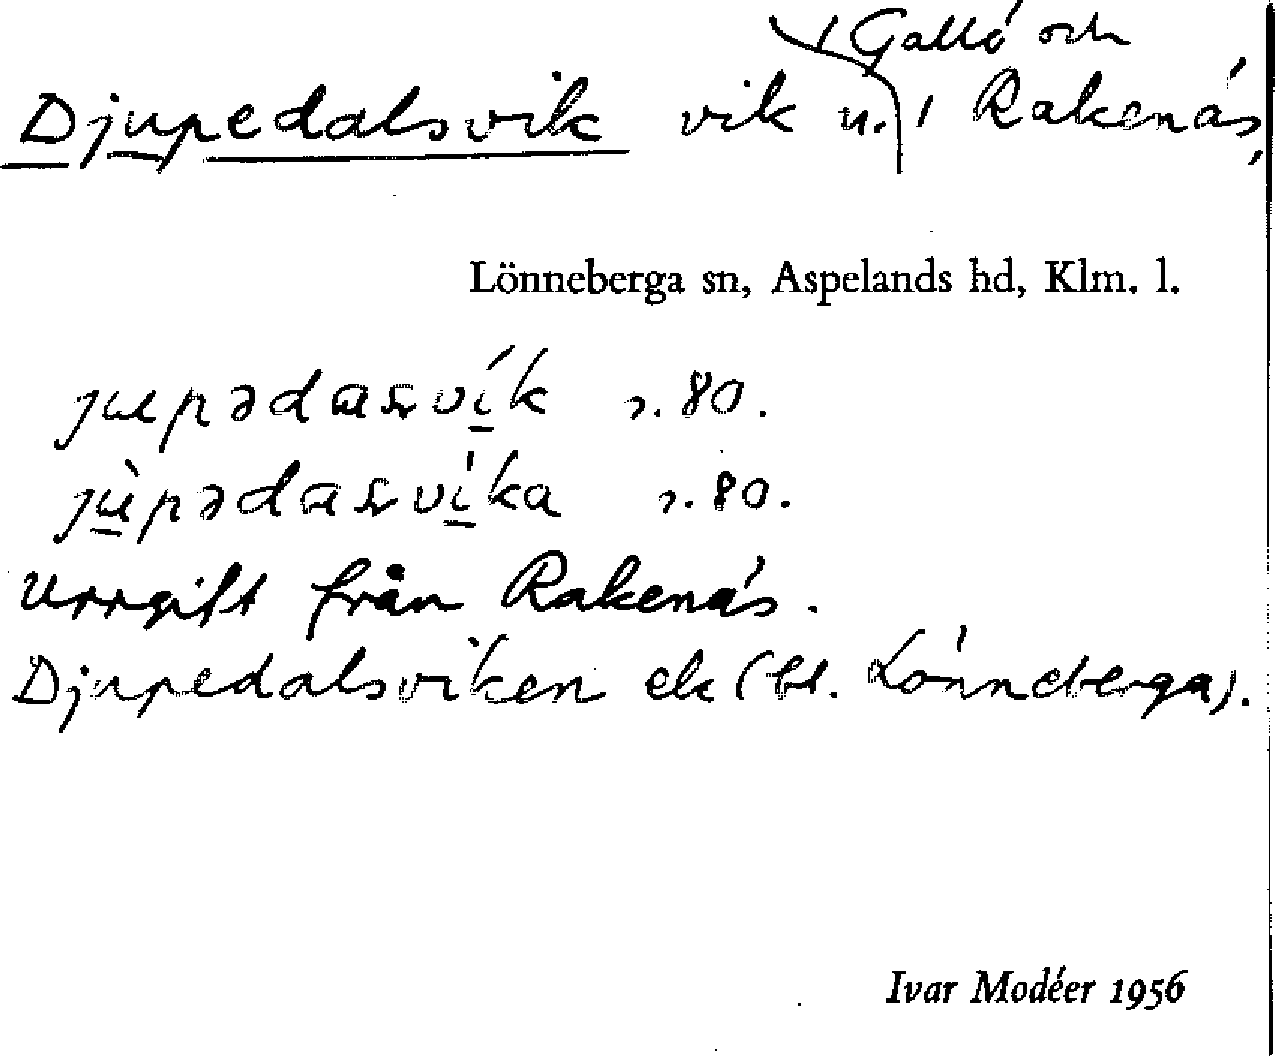 1 Gallö och
Djupedalsvik vik u. 1 Rakenäs,
Lönneberga sn, Aspelands hd, Klm. l.
s. 80.
s. 80.
Uppgift från Rakenäs.
Djupedalsviken ek (bl. Lönneberga).
Ivar Modéer 1956